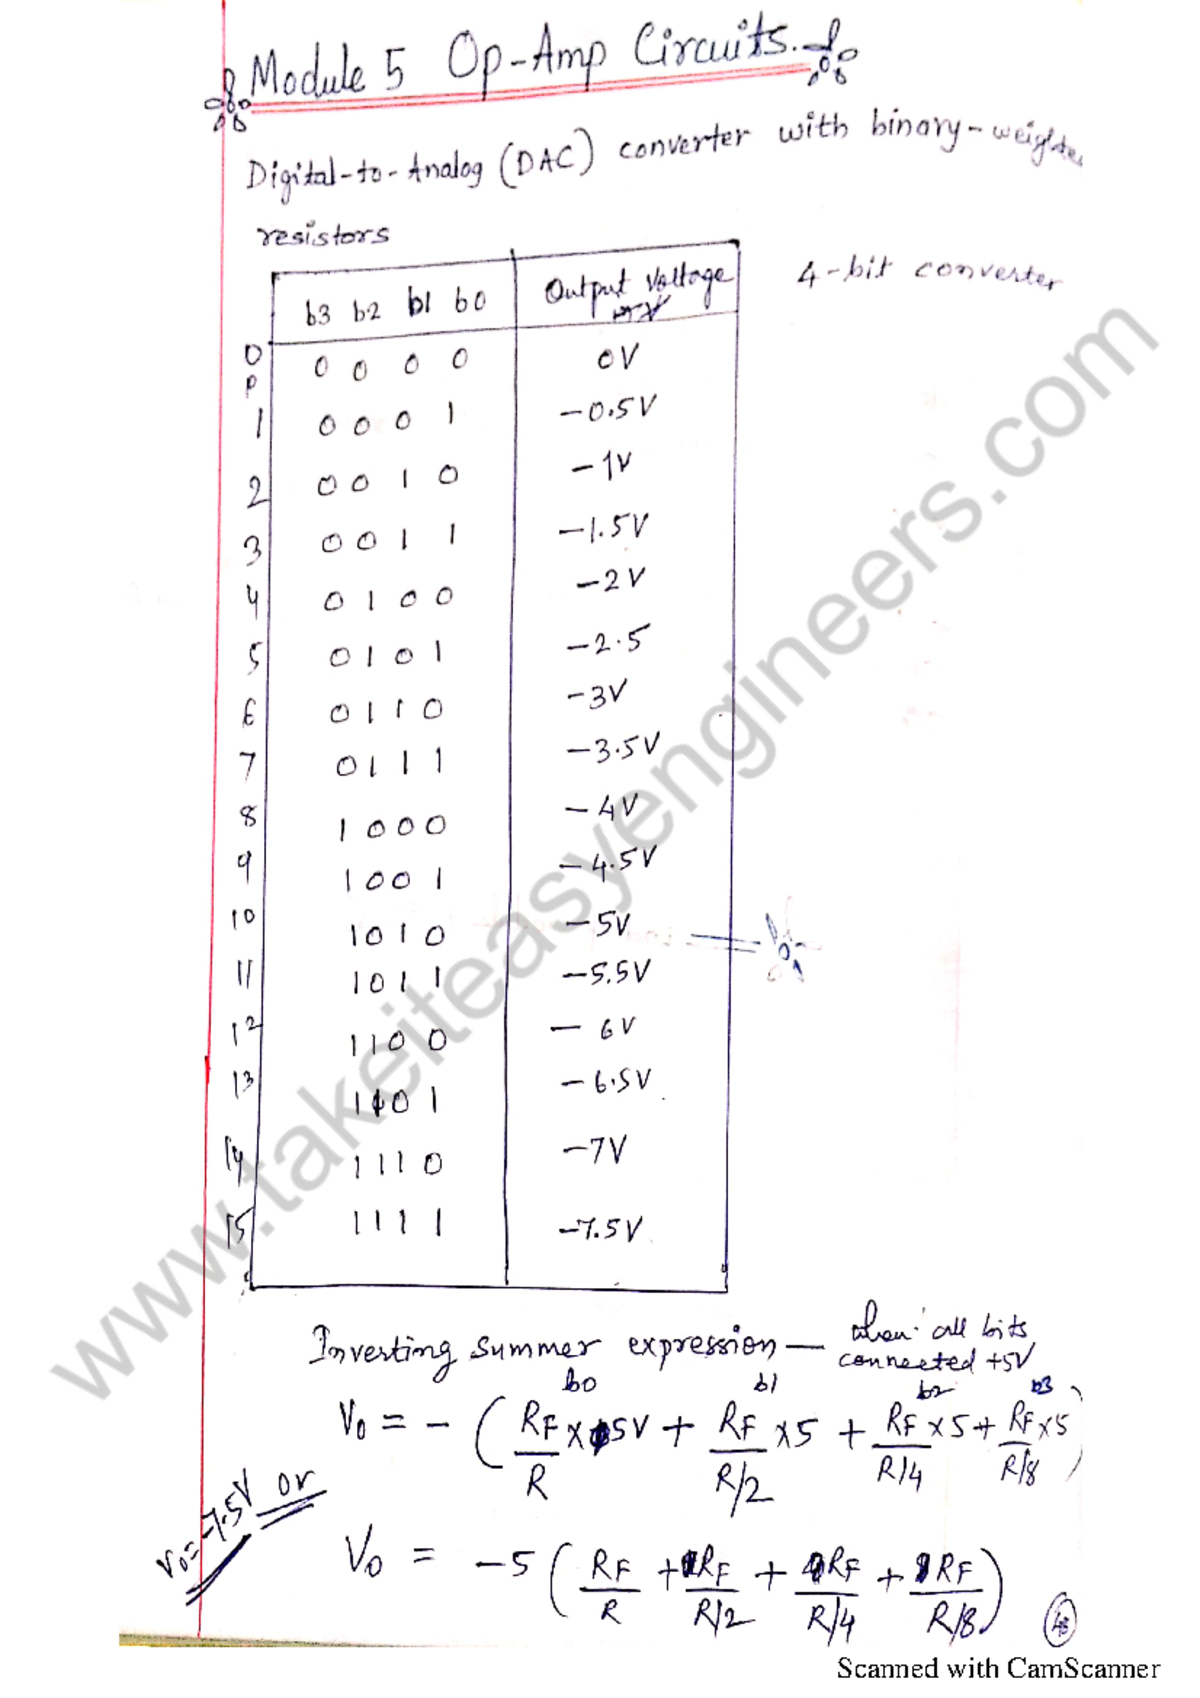 Module 5 Op-Amp Circuits.
Digital-to-Analog (DAC) converter with binary-weighted
resistors
4-bit converter
b3 b2 b1 b0 Output Voltage
0 0 0 0 0 0V
1 0 0 0 1 -0.5V
2 0 0 1 0 -1V
3 0 0 1 1 -1.5V
4 0 1 0 0 -2V
5 0 1 0 1 -2.5
6 0 1 1 0 -3V
7 0 1 1 1 -3.5V
8 1 0 0 0 -4V
9 1 0 0 1 -4.5V
10 1 0 1 0 -5V
11 1 0 1 1 -5.5V
12 1 1 0 0 -6V
13 1 1 0 1 -6.5V
14 1 1 1 0 -7V
15 1 1 1 1 -7.5V
Inverting Summer expression — when all bits
connected +5V
b0 b1 b2 b3
V0 = - (RF/R x 5V + RF/R/2 x 5 + RF/R/4 x 5 + RF/R/8 x 5)
V0 = -7.5V or
V0 = -5 (RF/R + RF/R/2 + RF/R/4 + RF/R/8)
www.takeiteasyengineers.com
Scanned with CamScanner